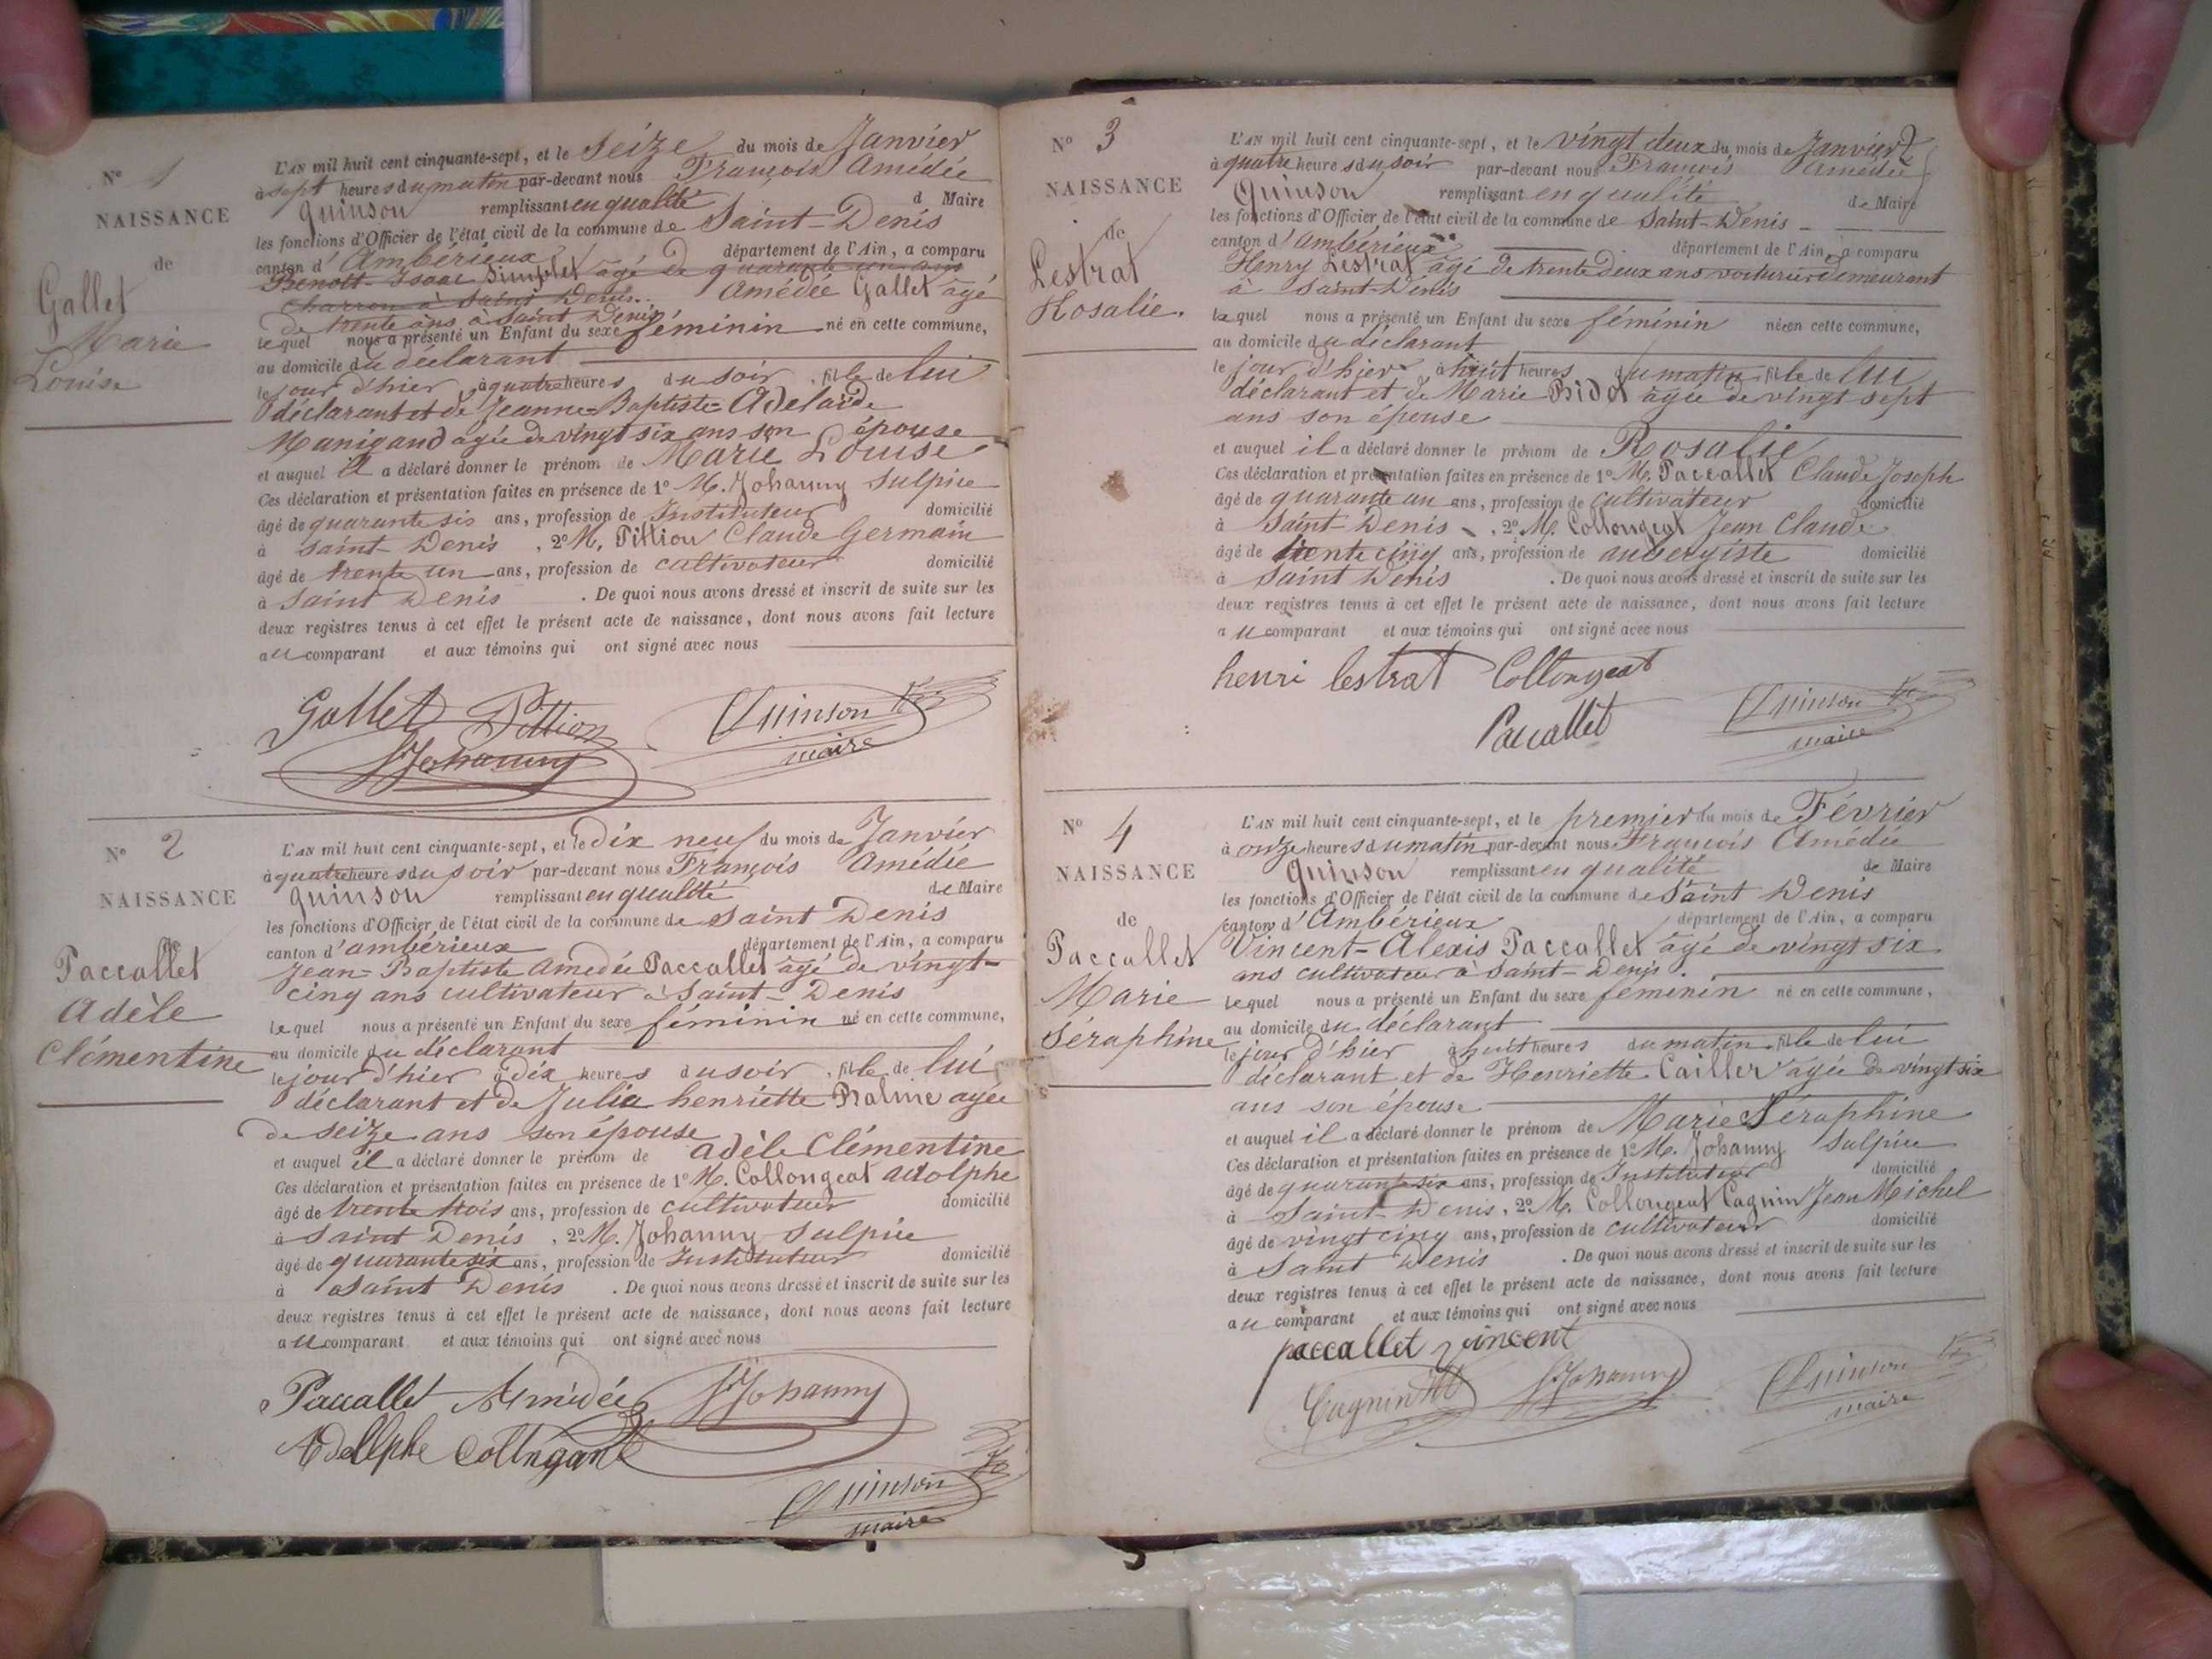 N° 1
NAISSANCE
de
Gallet
Marie
Louise
L'AN mil huit cent cinquante-sept, et le Seize du mois de Janvier
à sept heures du matin par-devant nous François Amédée
Quinson remplissant en qualité d Maire
les fonctions d'Officier de l'état civil de la commune de Saint-Denis
canton d'Ambérieux département de l'Ain, a comparu
Benoît-Isaac âgé de quarante un ans
charron à Saint Denis. Amédée Gallet âgé
de trente ans à Saint Denis
lequel nous a présenté un Enfant du sexe féminin né en cette commune,
au domicile du déclarant
le jour d'hier, à quatre heures du soir, fille de lui
déclarant et de Jeanne-Baptiste-Adelaïde
Manigand agée de vingt six ans son épouse
et auquel il a déclaré donner le prénom de Marie Louise
Ces déclaration et présentation faites en présence de 1° M. Johanny Sulpice
âgé de quarante six ans, profession de Instituteur domicilié
à Saint-Denis, 2° M. Pittion Claude Germain
âgé de trente un ans, profession de cultivateur domicilié
à Saint Denis. De quoi nous avons dressé et inscrit de suite sur les
deux registres tenus à cet effet le présent acte de naissance, dont nous avons fait lecture
au comparant et aux témoins qui ont signé avec nous
Gallet Pittion Quinson
Johanny maire
N° 2
NAISSANCE
Paccallet
Adèle
Clémentine
L'AN mil huit cent cinquante-sept, et le dix neuf du mois de Janvier
à quatre heures du soir par-devant nous François Amédée
Quinson remplissant en qualité de Maire
les fonctions d'Officier de l'état civil de la commune de Saint Denis
canton d'ambérieux département de l'Ain, a comparu
Jean-Baptiste Amedée Paccallet âgé de vingt-
cinq ans cultivateur à Saint-Denis
lequel nous a présenté un Enfant du sexe féminin né en cette commune,
au domicile du déclarant
le jour d'hier à dix heures du soir, fille de lui
déclarant et de Julie henriette agée
de seize ans son épouse
et auquel il a déclaré donner le prénom de adèle Clémentine
Ces déclaration et présentation faites en présence de 1° M. Collongeat adolphe
âgé de trente trois ans, profession de cultivateur domicilié
à Saint Denis, 2° M. Johanny Sulpice
âgé de quarante six ans, profession de Instituteur domicilié
à Saint Denis. De quoi nous avons dressé et inscrit de suite sur les
deux registres tenus à cet effet le présent acte de naissance, dont nous avons fait lecture
au comparant et aux témoins qui ont signé avec nous
Paccallet Amédée Johanny
Quinson
maire
N° 3
NAISSANCE
de
Lestrat
Rosalie.
L'AN mil huit cent cinquante-sept, et le vingt deux du mois de Janvier
à quatre heures du soir par-devant nous François Amédée
Quinson remplissant en qualité de Maire
les fonctions d'Officier de l'état civil de la commune de Saint-Denis
canton d'ambérieux département de l'Ain, a comparu
Henry Lestrat âgé de trente deux ans voiturier demeurant
à Saint-Denis
lequel nous a présenté un Enfant du sexe féminin né en cette commune,
au domicile du déclarant
le jour d'hier à huit heures du matin, fille de lui
déclarant et de Marie Bidot agée de vingt sept
ans son épouse
et auquel il a déclaré donner le prénom de Rosalie
Ces déclaration et présentation faites en présence de 1° M. Paccallet Claude Joseph
âgé de quarante un ans, profession de cultivateur domicilié
à Saint-Denis, 2° M. Collongeat Jean Claude
âgé de trente cinq ans, profession de aubergiste domicilié
à Saint Denis. De quoi nous avons dressé et inscrit de suite sur les
deux registres tenus à cet effet le présent acte de naissance, dont nous avons fait lecture
au comparant et aux témoins qui ont signé avec nous
henri lestrat Collongeat
Paccallet Quinson
maire
N° 4
NAISSANCE
de
Paccallet
Marie
Séraphine
L'AN mil huit cent cinquante-sept, et le premier du mois de Février
à onze heures du matin par-devant nous François Amédée
Quinson remplissant en qualité de Maire
les fonctions d'Officier de l'état civil de la commune de Saint Denis
canton d'Ambérieux département de l'Ain, a comparu
Vincent-Alexis Paccallet âgé de vingt six
ans cultivateur à Saint-Denis.
lequel nous a présenté un Enfant du sexe féminin né en cette commune,
au domicile du déclarant
le jour d'hier à huit heures du matin, fille de lui
déclarant et de Henriette Cailler agée de vingt six
ans son épouse
et auquel il a déclaré donner le prénom de Marie Séraphine
Ces déclaration et présentation faites en présence de 1° M. Johanny Sulpice
âgé de quarante six ans, profession de Instituteur domicilié
à Saint-Denis, 2° M. Collongeat Cagnin Jean Michel
âgé de vingt cinq ans, profession de cultivateur domicilié
à Saint Denis. De quoi nous avons dressé et inscrit de suite sur les
deux registres tenus à cet effet le présent acte de naissance, dont nous avons fait lecture
au comparant et aux témoins qui ont signé avec nous
paccallet vincent
Cagnin Johanny Quinson
maire